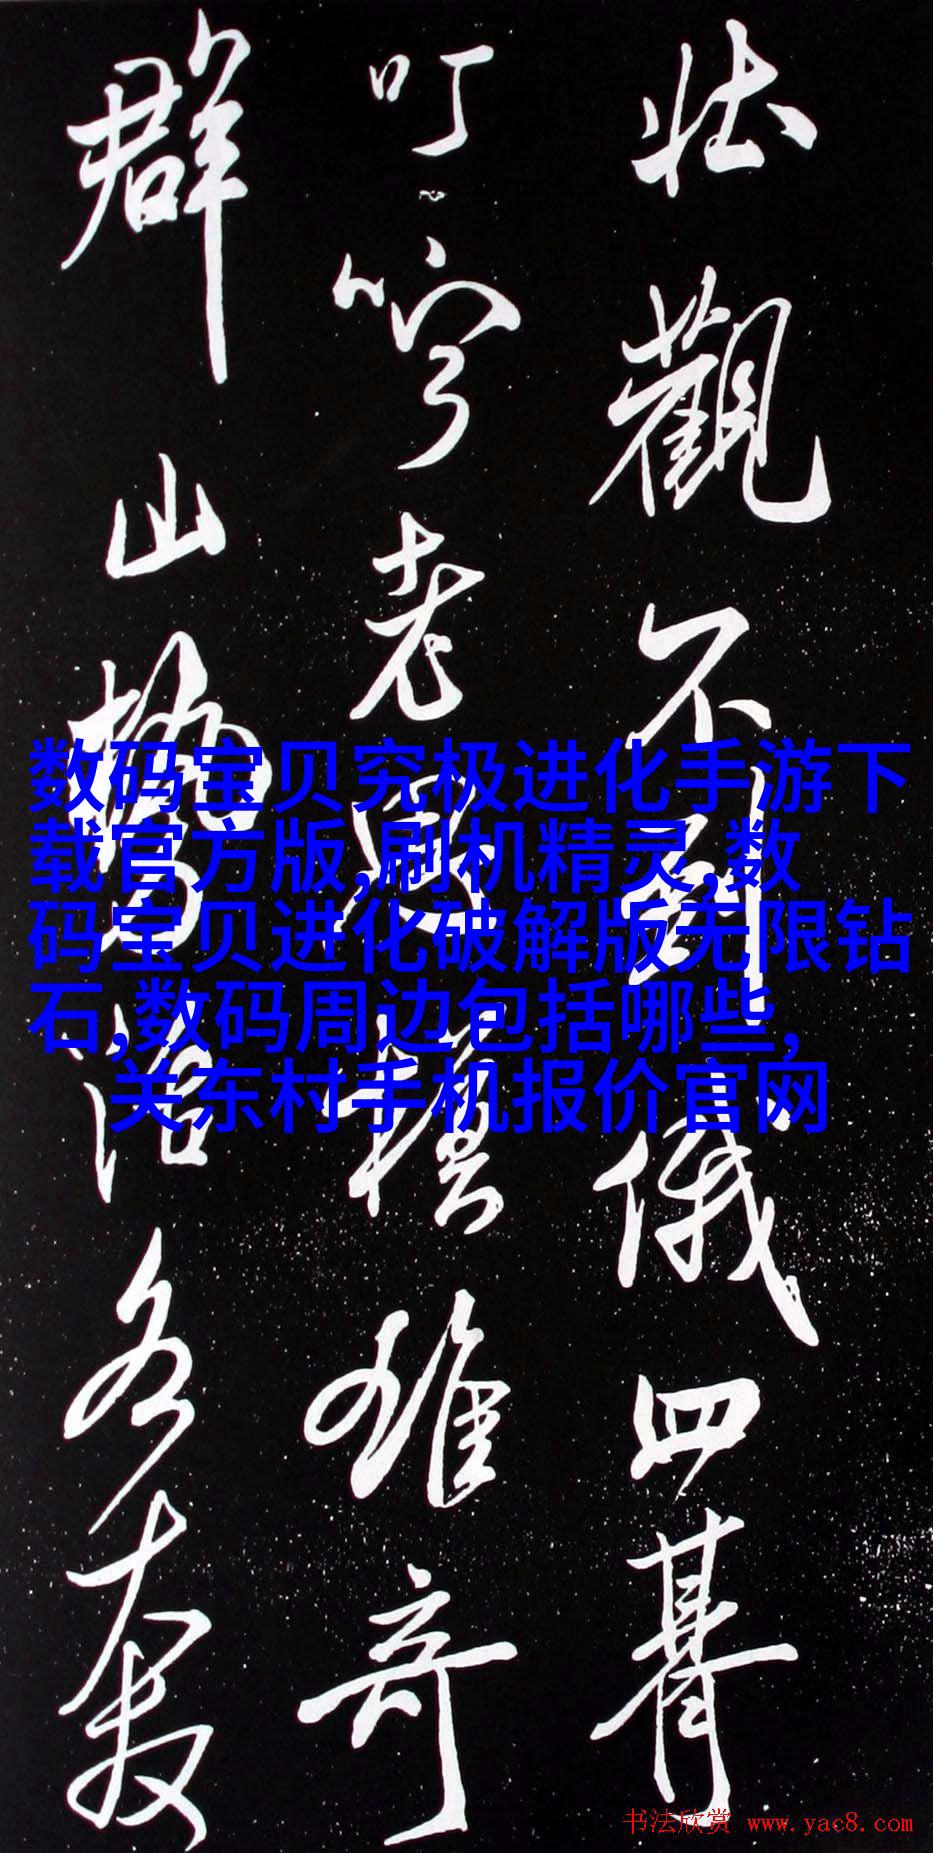 壮观不到俄四暮
叮咛老思推雄奇
群山势
数码宝贝究极进化手游下
载官方版,刷机精灵,数
码宝贝进化破解版无限钻
石,数码周边包括哪些,
关东村手机报价官网
书法欣赏 www.yac8.com